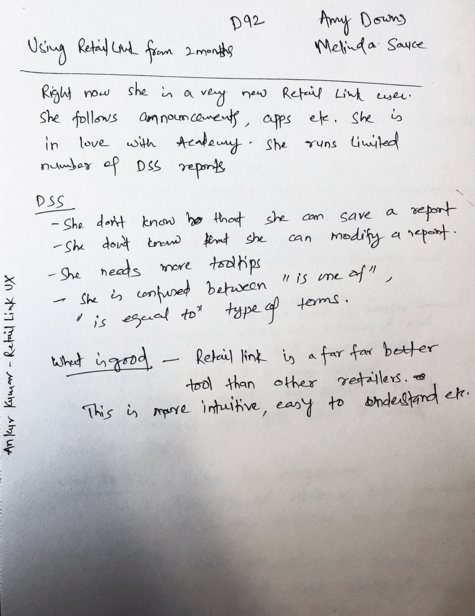 D92
Amy Downs
Using Retail Link from 2 months
Melinda Sauce
Right now she is a very new Retail Link user.
She follows announcements, apps etc. She is
in love with Academy. She runs limited
number of DSS reports
DSS
- She don't know that she can save a report
- She don't know that she can modify a report.
- She needs more tooltips
- She is confused between "is one of",
"is equal to" type of terms.
What is good - Retail link is a far far better
tool than other retailers.
This is more intuitive, easy to understand etc.
Ankur Kumar - Retail Link UX